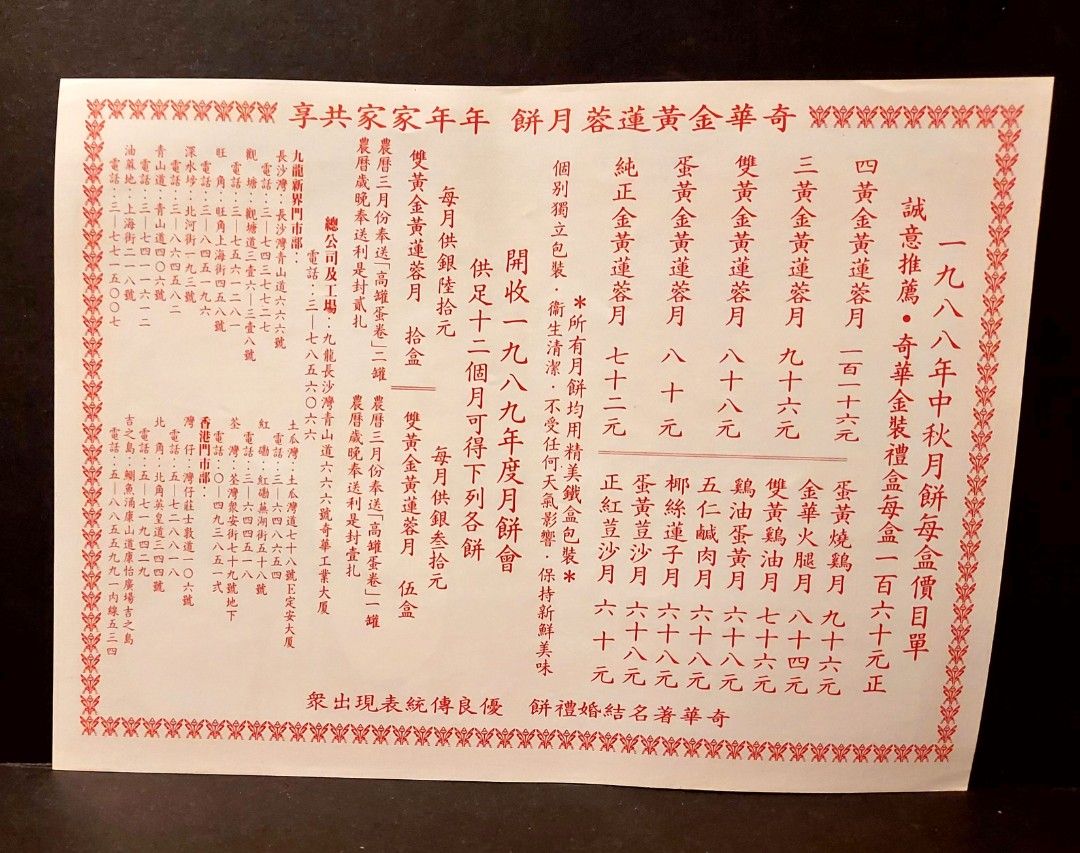 奇華金黃蓮蓉月餅 年年家家共享
一九八八年中秋月餅每盒價目單
誠意推薦•奇華金裝禮盒每盒一百六十元正
四黃金黃蓮蓉月 一百一十六元
三黃金黃蓮蓉月 九十六元
雙黃金黃蓮蓉月 八十八元
蛋黃金黃蓮蓉月 八十元
純正金黃蓮蓉月 七十二元
蛋黃燒鷄月 九十六元
金華火腿月 八十四元
雙黃鷄油月 七十六元
鷄油蛋黃月 六十八元
五仁鹹肉月 六十八元
椰絲蓮子月 六十八元
蛋黃荳沙月 六十八元
正紅荳沙月 六十元
*所有月餅均用精美鐵盒包裝*
個別獨立包裝．衞生清潔．不受任何天氣影響．保持新鮮美味
開收一九八九年度月餅會
供足十二個月可得下列各餅
每月供銀陸拾元
雙黃金黃蓮蓉月 拾盒
農曆三月份奉送「高罐蛋卷」二罐
農曆歲晚奉送利是封貳扎
每月供銀叁拾元
雙黃金黃蓮蓉月 伍盒
農曆三月份奉送「高罐蛋卷」一罐
農曆歲晚奉送利是封壹扎
總公司及工場：九龍長沙灣青山道六六六號奇華工業大厦
電話：三—七八五六〇六六
九龍新界門市部：
長沙灣：長沙灣青山道六六六號
電話：三—七四三七七二七
觀塘：觀塘道三壹六—三壹八號
電話：三—七五六一二八一
旺角：旺角上海街四五八號
電話：三—八四五一九六
深水埗：北河街一九三號
電話：三—八六四五八二
青山道：青山道四〇六號
電話：三—七四一一六一二
油蔴地：上海街二一八號
電話：三—七七一五〇〇七
土瓜灣：土瓜灣道七十八號E定安大厦
電話：三—六四八六五四
紅磡：紅磡蕪湖街五十八號
電話：三—六四四五一八
荃灣：荃灣衆安街七十九號地下
電話：〇—四九三八五一弍
香港門市部：
灣仔：灣仔莊士敦道一〇六號
電話：五—七二八八一八
北角：北角英皇道三四四號
電話：五—七一九四二九
吉之島：鰂魚涌康山道康怡廣場吉之島
電話：五—八八五五九九一內線五三四
奇華著名結婚禮餅 優良傳統表現出衆